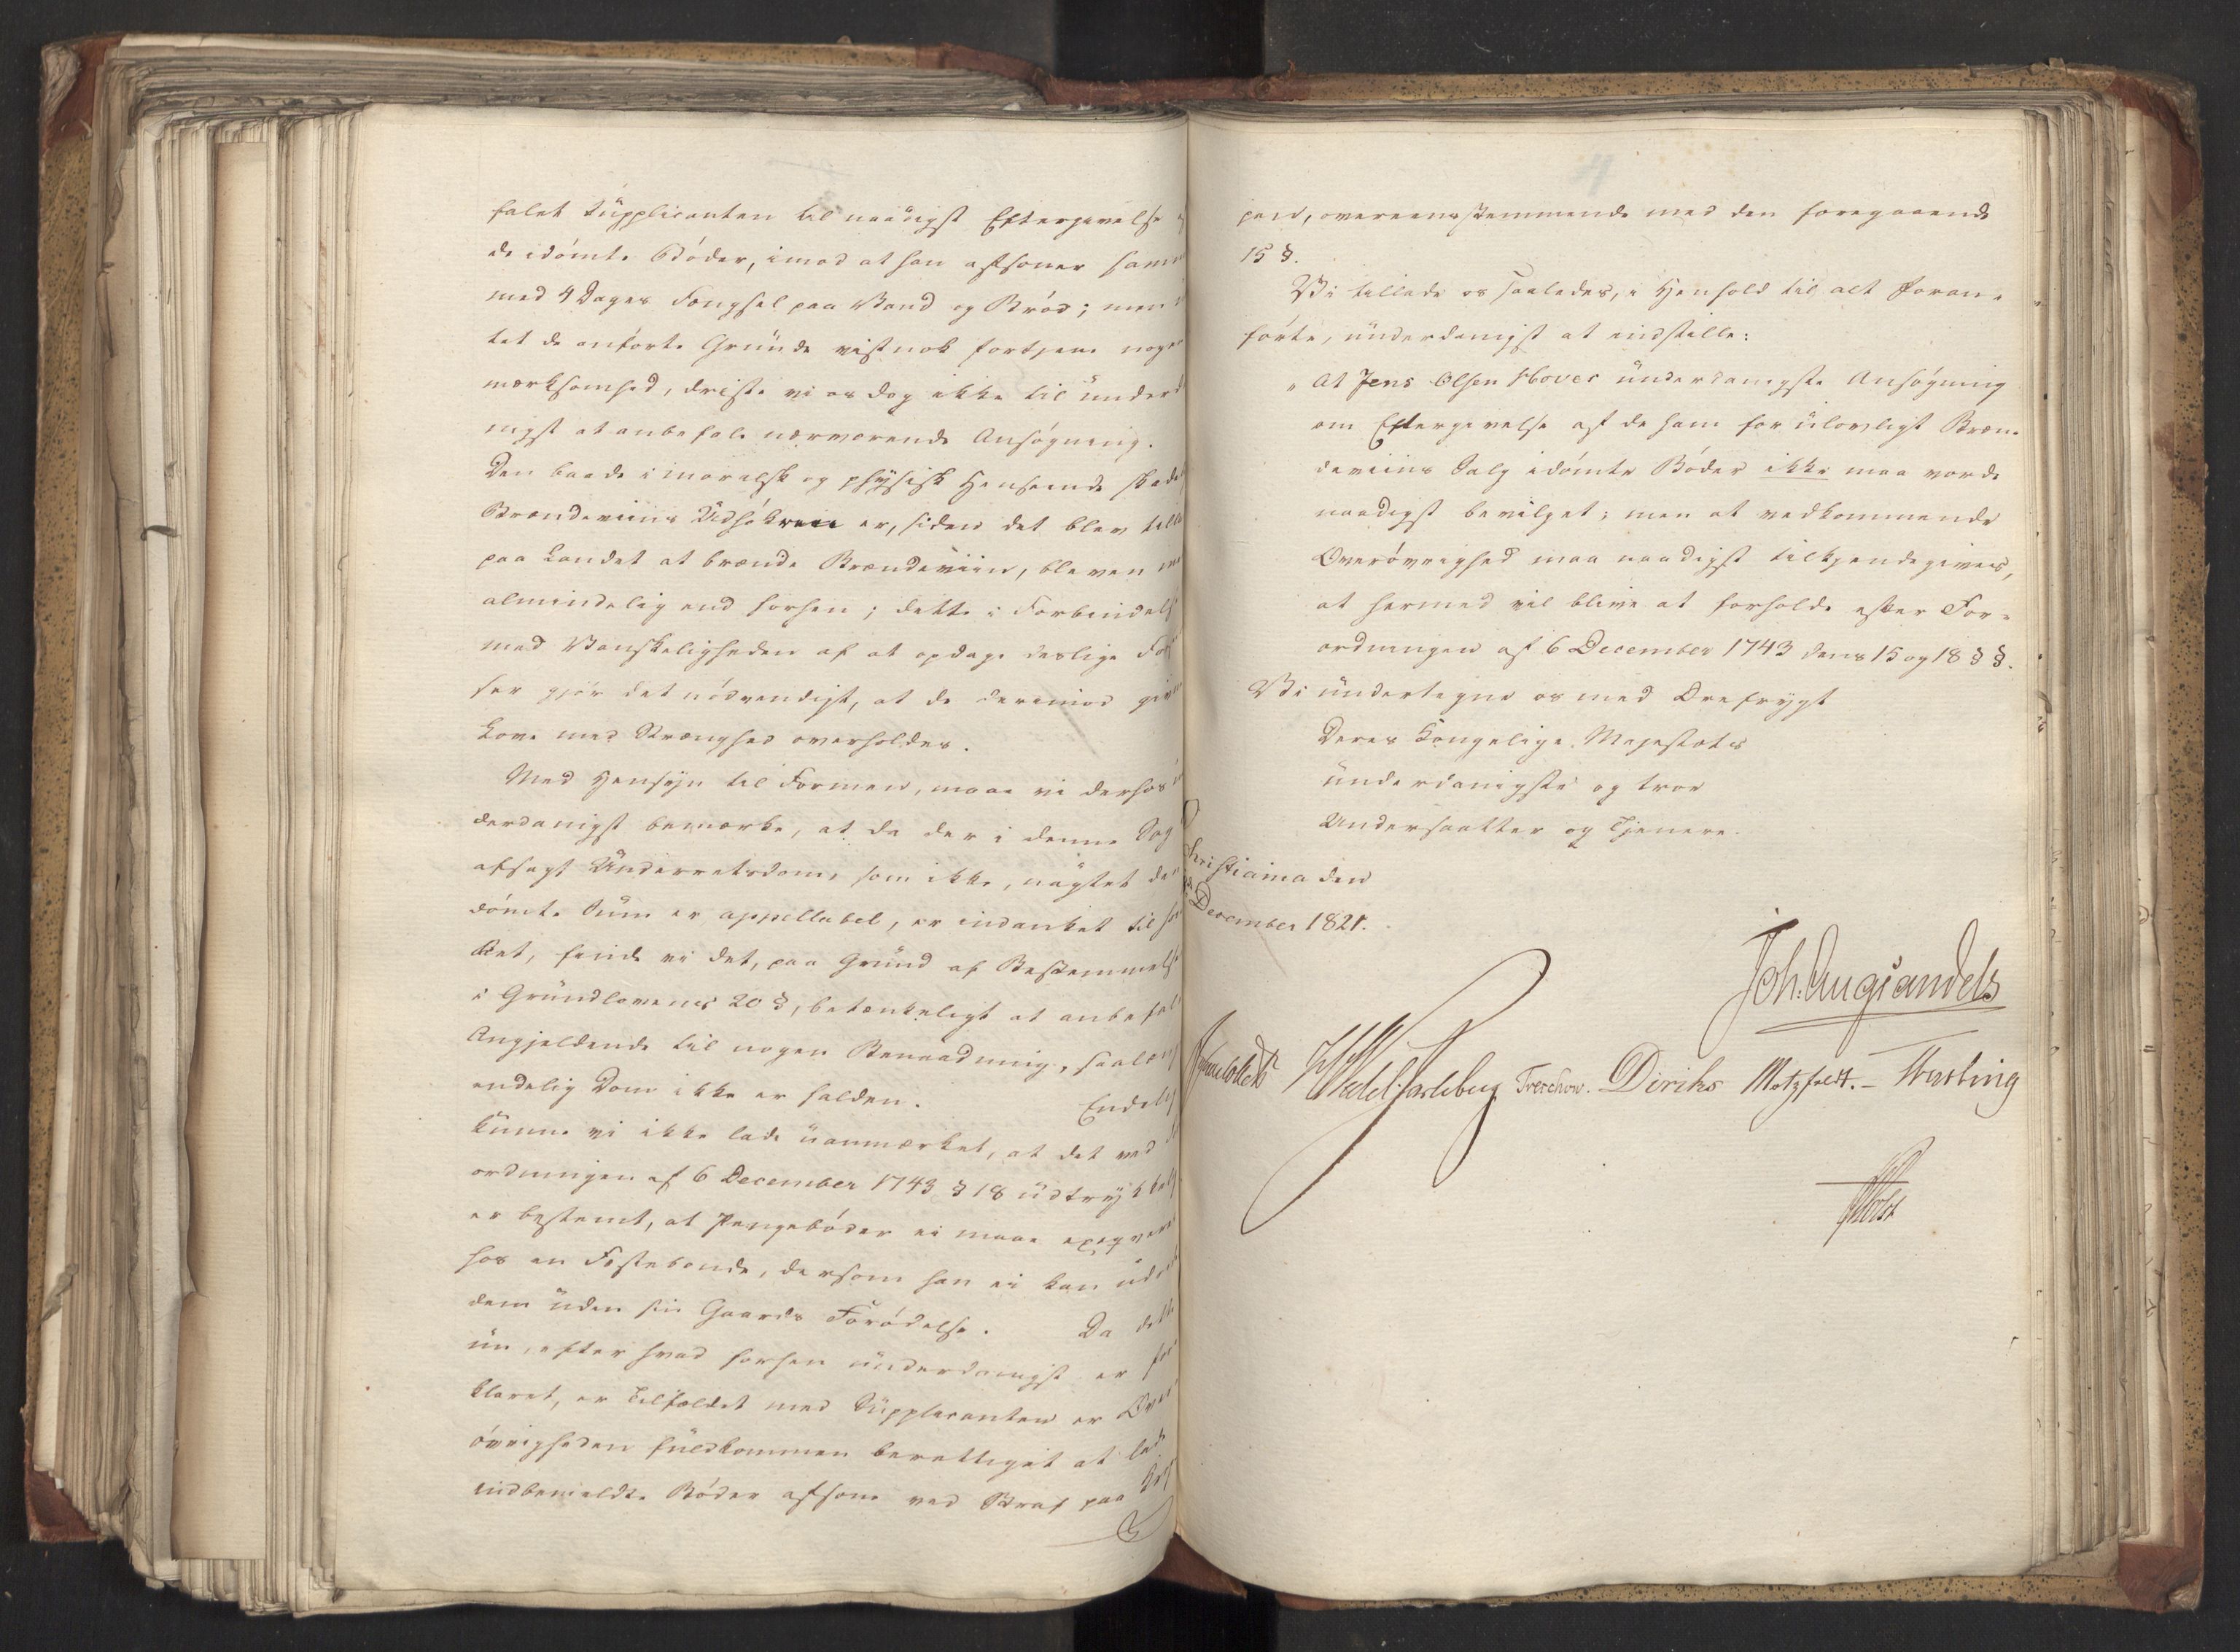 falet Supplicanten til naadigst Eftergivelse
de idömte Böder, imod at han afsoner samme
med 4 Dages Fængsel paa Vand og Bröd; men
tet de anförte Grunde vistnok fortjene nogen
mærksomhed, driste vi os dog ikke til underd
nigst at anbefale nærværende Ansögning.
Den baade i moralsk og physisk Henseende skade
Brændeviins Udsöknin er, siden det blev till
paa Landet at brænde Brændeviin, bleven me
almindelig end forhen; dette i Forbindelse
med Vanskeligheden af at opdage deslige For
ser gjör det nödvendigt, at de derimod givne
Love med Strænghed overholdes.
Med Hensyn til Formen, maae vi derhos
derdanigst bemærke, at da der i denne Sag
afsagt Underretsdom, som ikke, uagtet den
dömte Sum er appellabel, er indanket til
Ret, finde vi det, paa Grund af Bestemmelse
i Grundlovens 20 §, betænkeligt at anbefale
Angjeldende til nogen Benaadning, saalænge
endelig Dom ikke er falden. Endelig
kunne vi ikke lade uanmærket, at det ved
ordningen af 6 December 1743 § 18 udtrykkelig
er bestemt, at Pengebøder ei maae exeqveres
hos en Festebonde, dersom han ei kan ud
dem uden sin Gaards Forödelse. Da dette
nu, efter hvad forhen underdanigst er for
klaret, er Tilfældet med Supplicanten er Over
övrigheden fuldkommen berettiget at lade
indbemeldte Böder afsone ved Straf paa Krop
pen, overeensstemmende med den foregaaende
15 §.
Vi tillade os saaledes, i Henhold til alt Foran-
förte, underdanigst at indstille:
„At Jens Olsen Hoves underdanigste Ansögning
om Eftergivelse af de ham for ulovligt Bræn-
deviins Salg idömte Böder ikke maa vorde
naadigst bevilget; men at vedkommende
Overövrighed maa naadigst tilkjendegives,
at hermed vil blive at forholde efter For-
ordningen af 6 December 1743 dens 15 og 18 § §.
Vi undertegne os med Ærefrygt
Deres Kongelige Majestæts
underdanigste og troe
Undersaatter og Tjenere.
Christiania den
December 1821.
Joh. Aug. Sandels
Wedel Jarlsberg Treschow. Diriks Motzfeldt.- Fasting
Holst